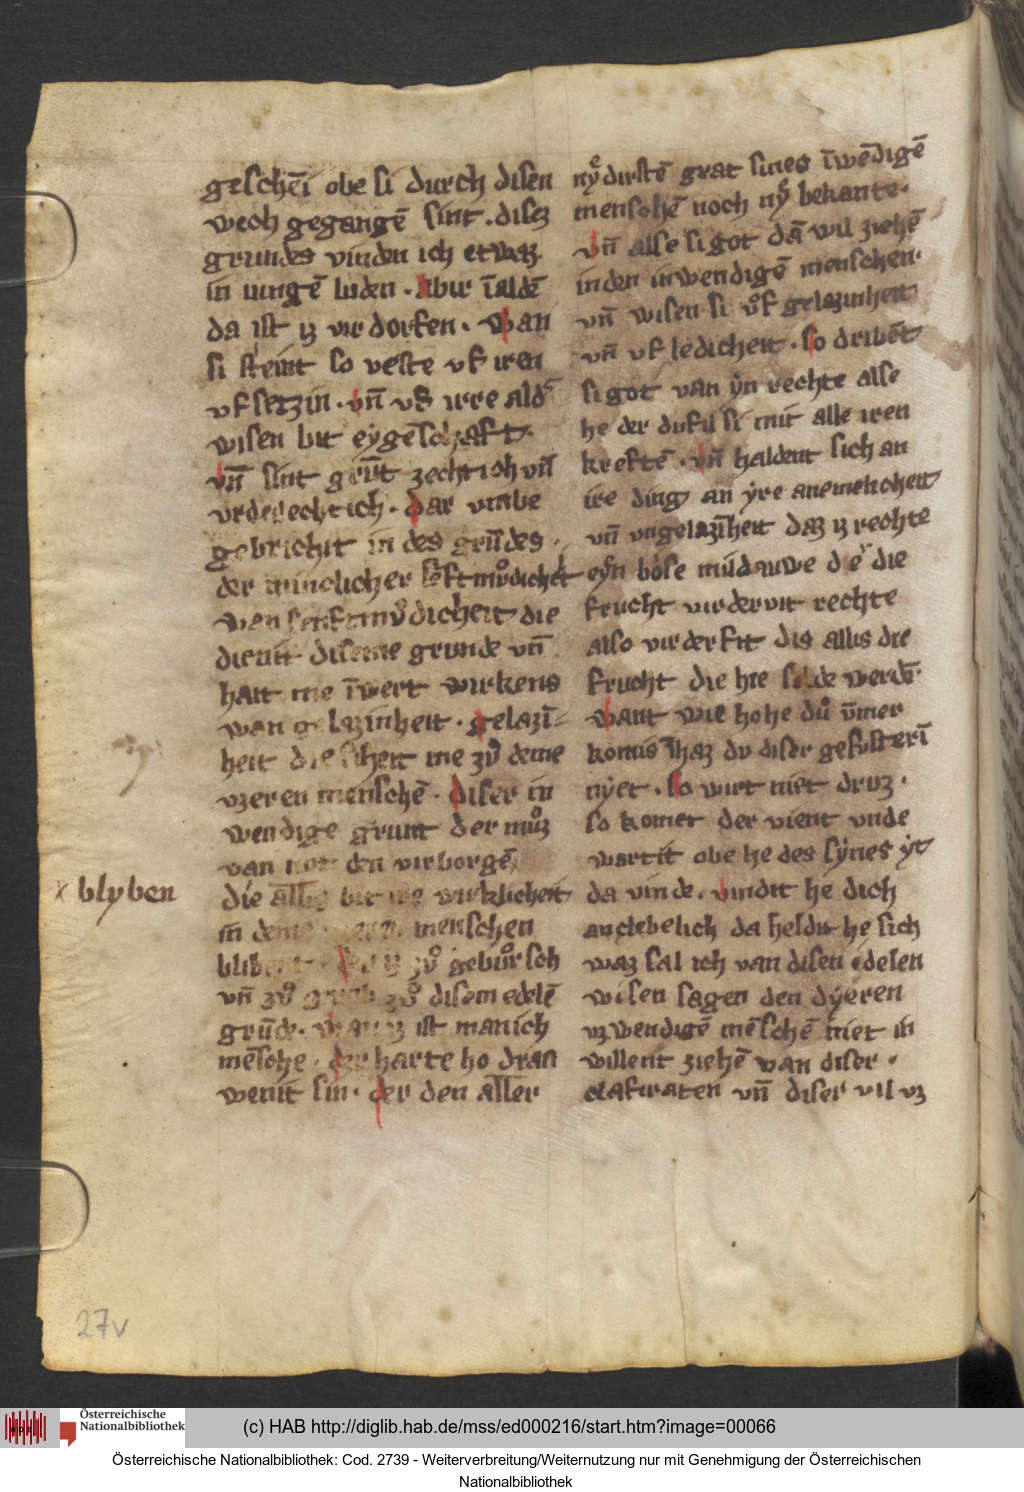 geschēi obe si durch disen
wech gegangē sint . disez
grundes vinden ich etwaz.
in iungē luden . Abir īaldē
da ist iz vir dorfen . Wan
si steint so veste vf iren
vf setzin . vn̄ irre ald
wisen bit eẏgēschaft.
vn̄ sint grūt zechtich vn̄
Dar vmbe
gebrichit in des grūdes .
der
wan senftmůdicheit die
dienit diseme grunde vn̄
hait nie īwert wirkens
wan gelazinheit . gelazī=
heit die niet me zů deme
vzeren menschē . diser in
wendige grunt der můz
van not den virborgē
die allis bit wirklicheit
in deme menschen
zů geburͦsch
vn̄ zů zů disem edelē
grūde . ist manich
mēsche . der harte ho dran
wenit sin . der den aller
× blyben
nẏ̊dirstē grat sines īwēdigē
menschē noch nẏ̊ bekante.
Vn̄ alse si got dā wil ziehē
in den inwendigē menschen.
vn̄ wisen si v̊f gelazinheit
vn̄ vf ledicheit . So dribēt
si got van ẏn rechte alse
he der dufil si mit alle iren
kreftē . Vn̄ haldent sich an
ire ding an ẏre anemelicheit
vn̄ vngelazīheit daz iz rechte
eẏn bose die
frucht virdervit rechte
also virderfit dis allis die
frucht die hie solde werdē.
Want wie hohe dů v̄mer
komis īhaz du diser gesusterī
nẏet . So wirt niet druz .
so komet der vient vnde
wartit obe he des sẏnes ẏt
da vinde . vindit he dich
an clebelich da heldit he sich
waz sal ich van disen edelen
wisen sagen den dẏeren
vzwendigē mēschē niet in
willent ziehē van diser .
clafiraten vn̄ diser vil vz
27v
Österreichische
Nationalbibliothek
(c) HAB http://diglib.hab.de/mss/ed000216/start.htm?image=00066
Österreichische Nationalbibliothek: Cod. 2739 - Weiterverbreitung/Weiternutzung nur mit Genehmigung der Österreichischen
Nationalbibliothek